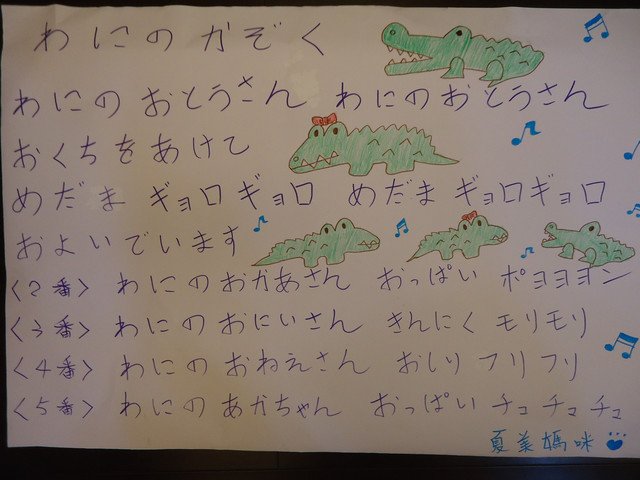 わにのかぞく
わにのおとうさん わにのおとうさん
おくちをあけて
めだま ギョロギョロ めだま ギョロギョロ
およいでいます
〈2番〉 わにのおかあさん おっぱい ポヨヨヨン
〈3番〉 わにのおにいさん きんにく モリモリ
〈4番〉 わにのおねえさん おしり フリフリ
〈5番〉 わにのあかちゃん おっぱい チュ チュ チュ
夏美媽咪